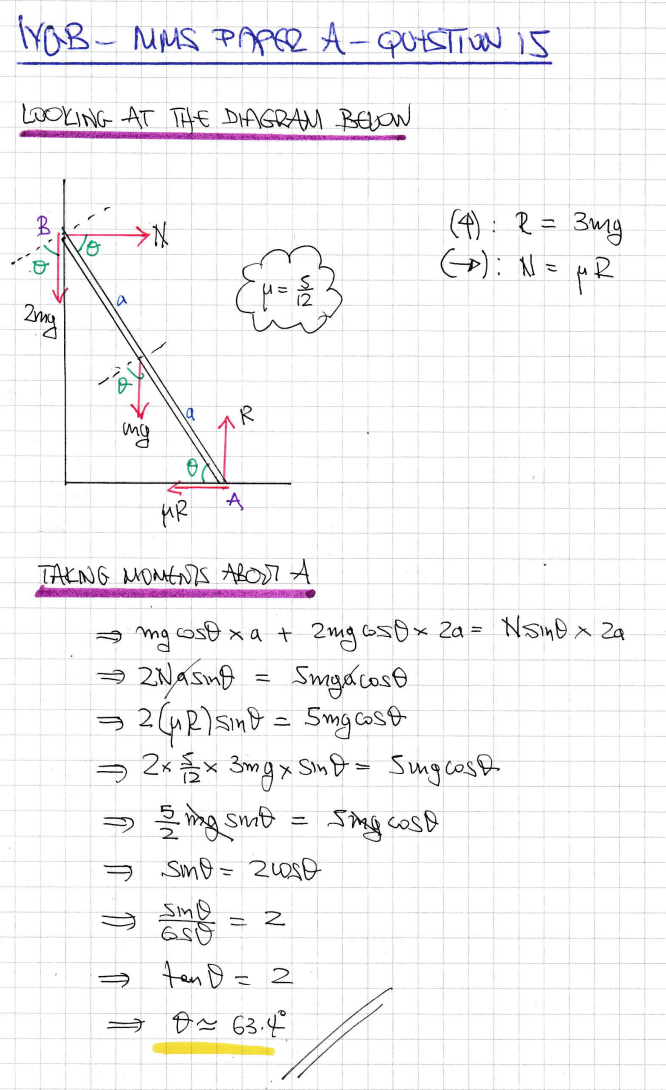 IYGB - MMS PAPER A - QUESTION 15
LOOKING AT THE DIAGRAM BELOW
B
N
θ
θ
2mg
a
μ = 5/12
(↑): R = 3mg
(→): N = μR
θ
mg
a
R
θ
μR
A
TAKING MOMENTS ABOUT A
⇒ mg cosθ × a + 2mg cosθ × 2a = N sinθ × 2a
⇒ 2Na sinθ = 5mga cosθ
⇒ 2(μR) sinθ = 5mg cosθ
⇒ 2 × 5/12 × 3mg × sinθ = 5mg cosθ
⇒ 5/2 mg sinθ = 5mg cosθ
⇒ sinθ = 2cosθ
⇒ sinθ/cosθ = 2
⇒ tanθ = 2
⇒ θ ≈ 63.4°